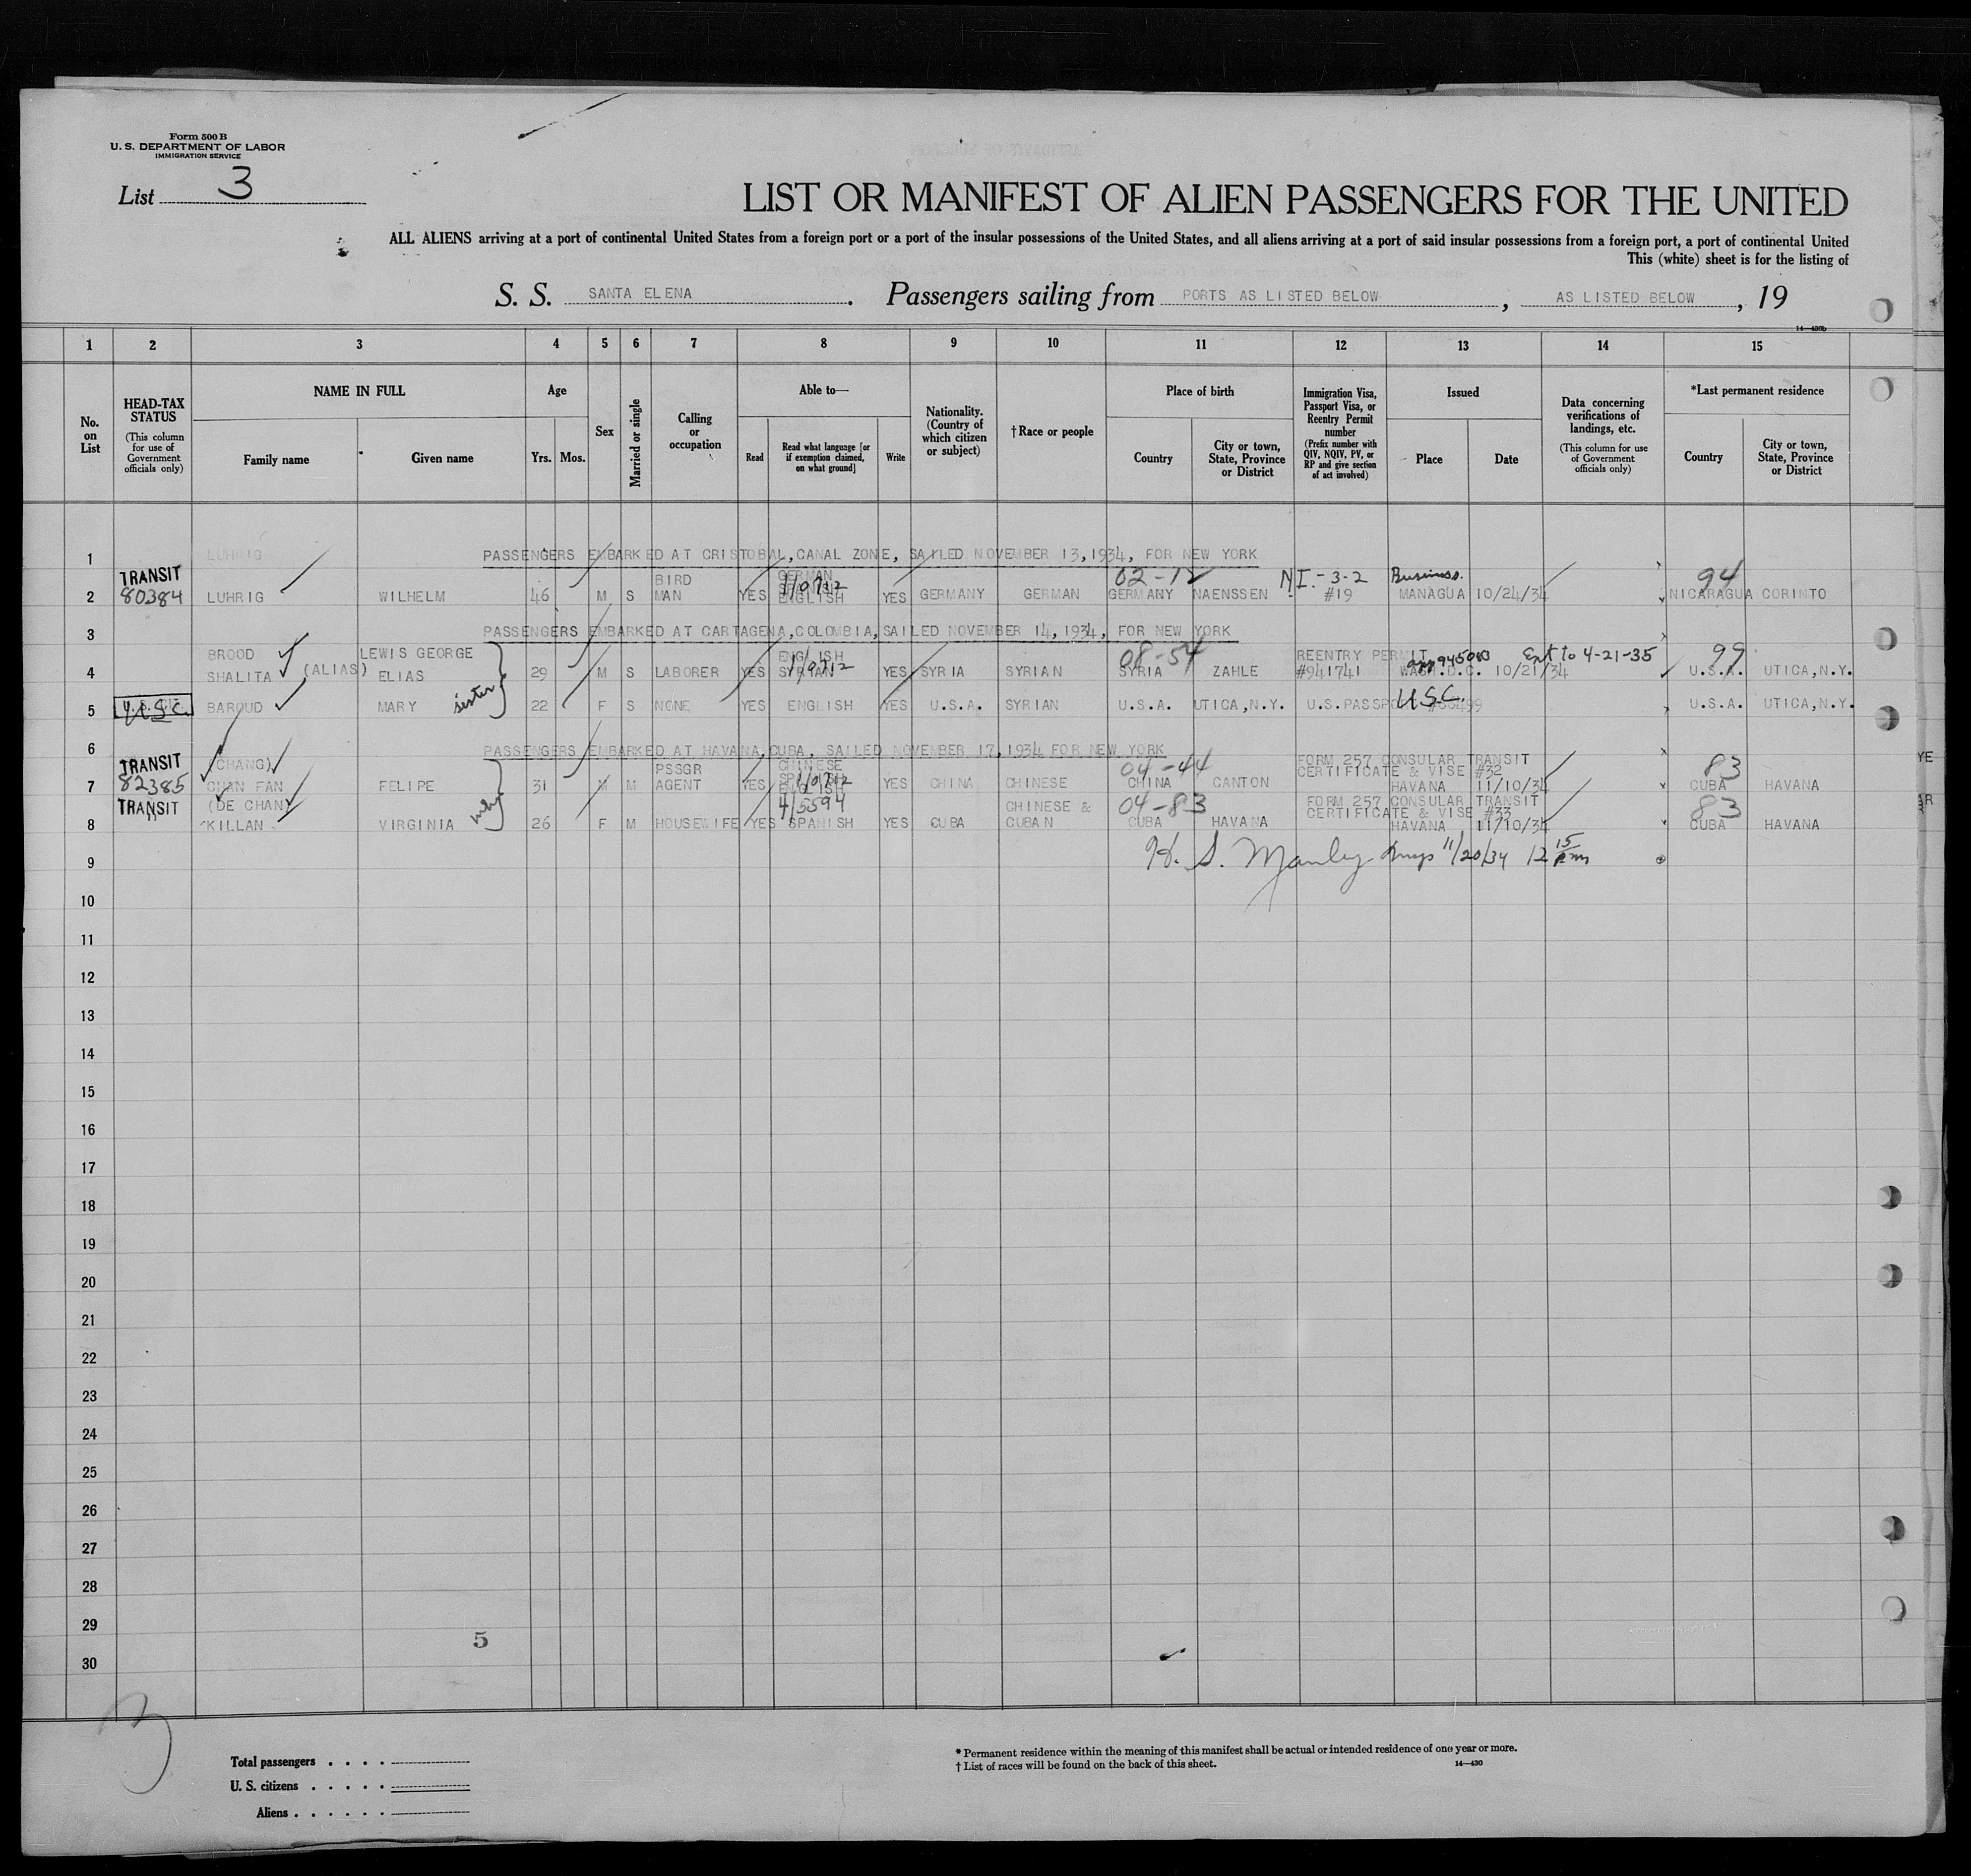 Form 500 B
U. S. DEPARTMENT OF LABOR
IMMIGRATION SERVICE
List 3
LIST OR MANIFEST OF ALIEN PASSENGERS FOR THE UNITED
ALL ALIENS arriving at a port of continental United States from a foreign port or a port of the insular possessions of the United States, and all aliens arriving at a port of said insular possessions from a foreign port, a port of continental United
This (white) sheet is for the listing of
S. S. SANTA ELENA. Passengers sailing from PORTS AS LISTED BELOW, AS LISTED BELOW, 19
14—430b
1 2 3 4 5 6 7 8 9 10 11 12 13 14 15
No. on List
HEAD-TAX STATUS (This column for use of Government officials only)
NAME IN FULL
Family name Given name
Age
Yrs. Mos.
Sex
Married or single
Calling or occupation
Able to—
Read Read what language [or if exemption claimed, on what ground] Write
Nationality. (Country of which citizen or subject)
† Race or people
Place of birth
Country City or town, State, Province or District
Immigration Visa, Passport Visa, or Reentry Permit number (Prefix number with QIV, NQIV, PV, or RP and give section of act involved)
Issued
Place Date
Data concerning verifications of landings, etc. (This column for use of Government officials only)
*Last permanent residence
Country City or town, State, Province or District
1 LUHRIG PASSENGERS EMBARKED AT CRISTOBAL, CANAL ZONE, SAILED NOVEMBER 13, 1934, FOR NEW YORK
TRANSIT BIRD GERMAN 02-12 N.I.-3-2 Business. 94
2 80384 LUHRIG WILHELM 46 M S MAN YES ENGLISH YES GERMANY GERMAN GERMANY NAENSSEN #19 MANAGUA 10/24/34 NICARAGUA CORINTO
3 PASSENGERS EMBARKED AT CARTAGENA, COLOMBIA, SAILED NOVEMBER 14, 1934, FOR NEW YORK
BROOD LEWIS GEORGE ENGLISH 08-54 REENTRY PERMIT 945083 Ext to 4-21-35 99
4 SHALITA (ALIAS) ELIAS 29 M S LABORER YES SYRIAN YES SYRIA SYRIAN SYRIA ZAHLE #941741 WASH.D.C. 10/21/34 U.S.A. UTICA, N.Y.
5 U.S.C. BAROUD MARY sister 22 F S NONE YES ENGLISH YES U.S.A. SYRIAN U.S.A. UTICA, N.Y. U.S.PASSPORT U.S.C. U.S.A. UTICA, N.Y.
6 PASSENGERS EMBARKED AT HAVANA, CUBA, SAILED NOVEMBER 17, 1934 FOR NEW YORK
TRANSIT (CHANG) PSSGR CHINESE SPANISH 04-44 FORM 257 CONSULAR TRANSIT CERTIFICATE & VISE #32 83
7 82385 CHAN FAN FELIPE 31 M M AGENT YES ENGLISH YES CHINA CHINESE CHINA CANTON HAVANA 11/10/34 CUBA HAVANA
TRANSIT (DE CHAN) wife 4/5594 CHINESE & 04-83 FORM 257 CONSULAR TRANSIT CERTIFICATE & VISE #33 83
8 " KILLAN VIRGINIA 26 F M HOUSEWIFE YES SPANISH YES CUBA CUBAN CUBA HAVANA HAVANA 11/10/34 CUBA HAVANA
9 H. S. Manley Insp 11/20/34 12 15 pm
10
11
12
13
14
15
16
17
18
19
20
21
22
23
24
25
26
27
28
29
5
30
3
Total passengers . . . .
U. S. citizens . . . . .
Aliens . . . . . .
* Permanent residence within the meaning of this manifest shall be actual or intended residence of one year or more.
† List of races will be found on the back of this sheet.
14—430